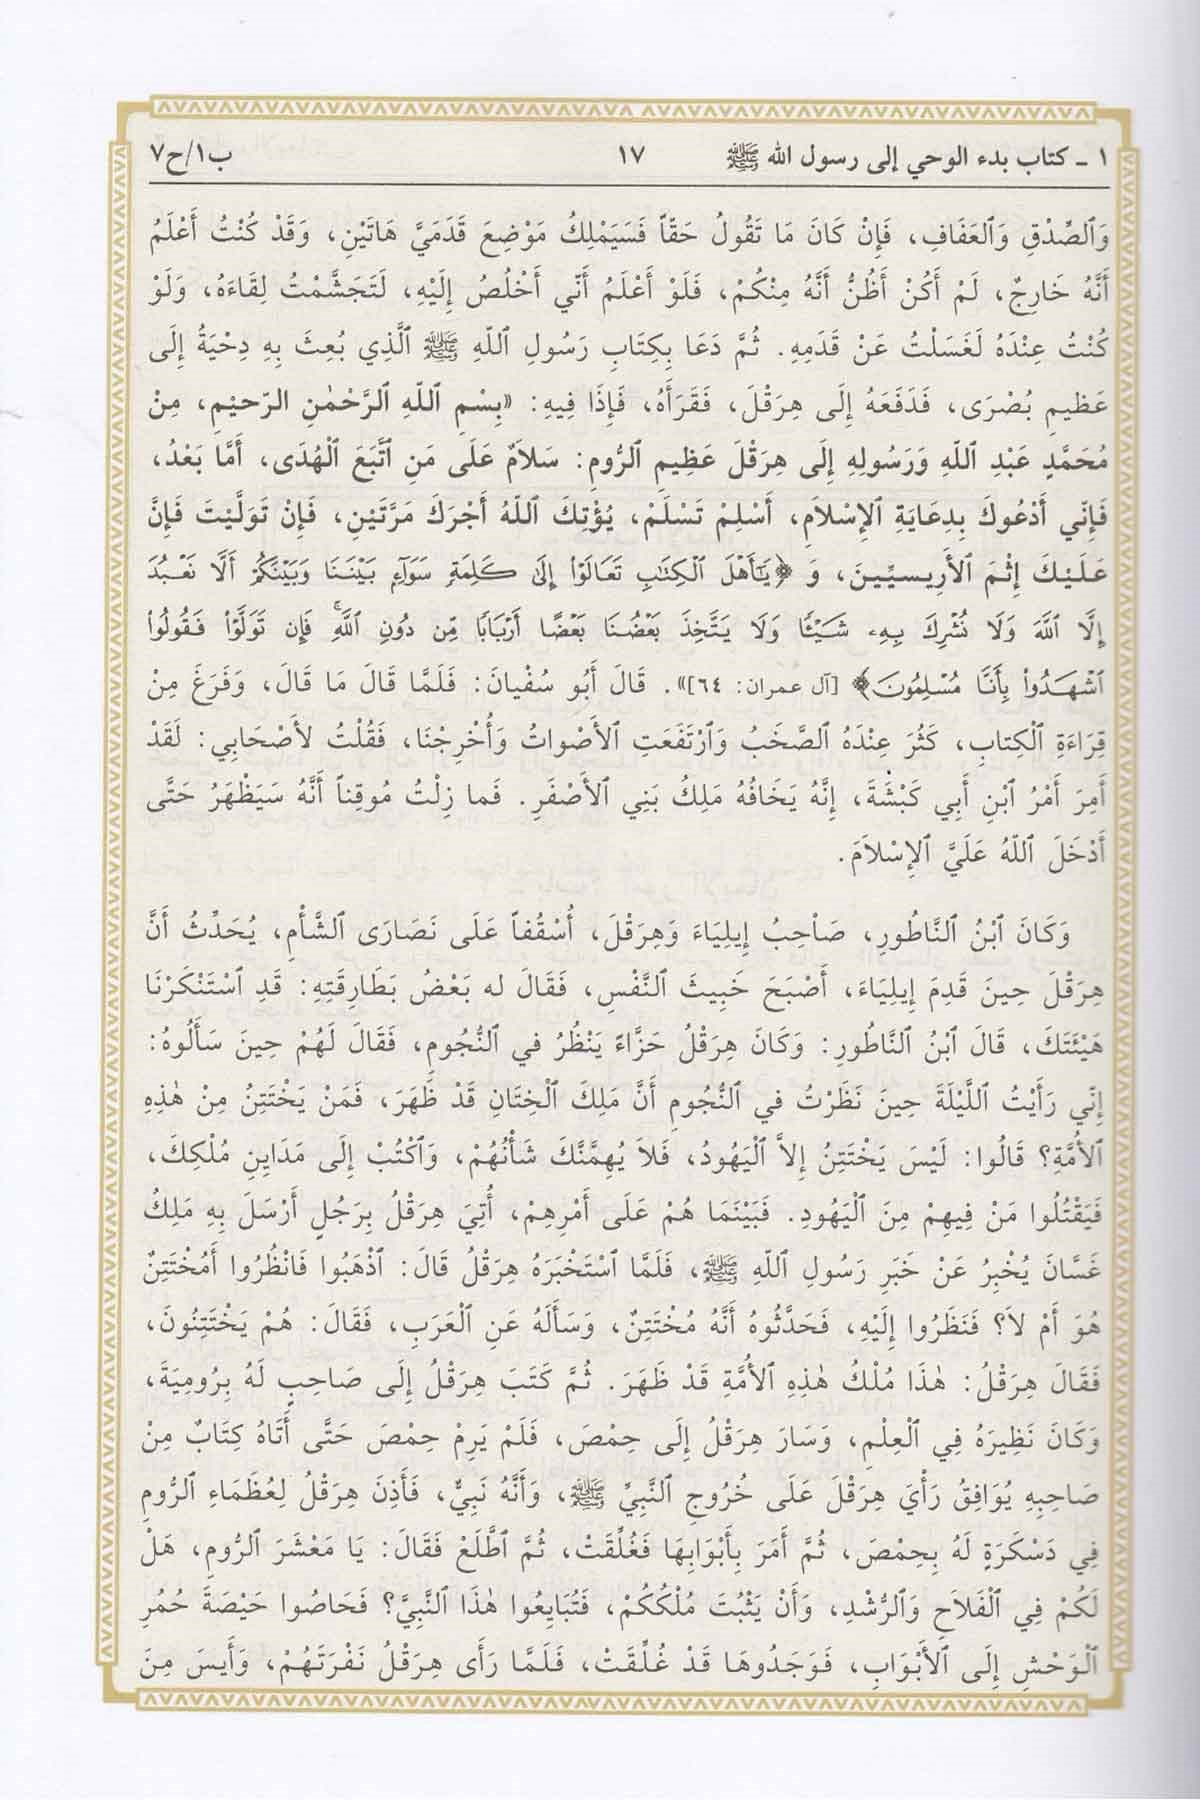 ١ ـ كتاب بدء الوحي إلى رسول الله ﷺ ١٧ ب١/ح٧
وَٱلصِّدْقِ وَٱلعَفَافِ، فَإِنْ كَانَ مَا تَقُولُ حَقّاً فَسَيَمْلِكُ مَوْضِعَ قَدَمَيَّ هَاتَيْنِ، وَقَدْ كُنْتُ أَعْلَمُ
أَنَّهُ خَارِجٌ، لَمْ أَكُنْ أَظُنُّ أَنَّهُ مِنْكُمْ، فَلَوْ أَعْلَمُ أَنّي أَخْلُصُ إِلَيْهِ، لَتَجَشَّمْتُ لِقَاءَهُ، وَلَوْ
كُنْتُ عِنْدَهُ لَغَسَلْتُ عَنْ قَدَمِهِ. ثُمَّ دَعَا بِكِتَابِ رَسُولِ ٱللّهِ ﷺ ٱلَّذِي بُعِثَ بِهِ دِحْيَةُ إِلَى
عَظِيمِ بُصْرَى، فَدَفَعَهُ إِلَى هِرَقْلَ، فَقَرَأَهُ، فَإِذَا فِيهِ: «بِسْمِ ٱللّهِ ٱلرَّحْمٰنِ ٱلرّحيْمِ، مِنْ
مُحَمَّدٍ عَبْدِ ٱللّهِ وَرَسُولِهِ إِلَى هِرَقْلَ عَظِيمِ ٱلرُّومِ: سَلاَمٌ عَلَى مَنِ ٱتَّبَعَ ٱلْهُدَى، أَمَّا بَعْدُ،
فَإِنّي أَدْعُوكَ بِدِعَايَةِ ٱلإِسْلاَمِ، أَسْلِمْ تَسْلَمْ، يُؤْتِكَ ٱللّهُ أَجْرَكَ مَرَّتَيْنِ، فَإِنْ تَوَلَّيْتَ فَإِنَّ
عَلَيْكَ إِثْمَ ٱلأَرِيسيِّينَ، وَ ﴿يَٰٓأَهْلَ ٱلْكِتَٰبِ تَعَالَوْا۟ إِلَىٰ كَلِمَةٍ سَوَآءٍۭ بَيْنَنَا وَبَيْنَكُمْ أَلَّا نَعْبُدَ
إِلَّا ٱللَّهَ وَلَا نُشْرِكَ بِهِۦ شَيْـًٔا وَلَا يَتَّخِذَ بَعْضُنَا بَعْضًا أَرْبَابًا مِّن دُونِ ٱللَّهِ ۚ فَإِن تَوَلَّوْا۟ فَقُولُوا۟
ٱشْهَدُوا۟ بِأَنَّا مُسْلِمُونَ﴾ [آل عمران: ٦٤]». قَالَ أَبُو سُفْيانَ: فَلَمَّا قَالَ مَا قَالَ، وَفَرَغَ مِنْ
قِرَاءَةِ ٱلْكِتَابِ، كَثُرَ عِنْدَهُ ٱلصَّخَبُ وَٱرْتَفَعَتِ ٱلأَصْواتُ وَأُخْرِجْنَا، فَقُلْتُ لأَصْحَابِي: لَقَدْ
أَمِرَ أَمْرُ ٱبْنِ أَبِي كَبْشَةَ، إِنَّهُ يَخَافُهُ مَلِكُ بَنِي ٱلأَصْفَرِ. فَما زِلْتُ مُوقِناً أَنَّهُ سَيَظْهَرُ حَتَّى
أَدْخَلَ ٱللّهُ عَلَيَّ ٱلإِسْلاَمَ.
وَكَانَ ٱبْنُ ٱلنَّاطُورِ، صَاْحِبُ إِيلِيَاءَ وَهِرَقْلَ، أُسْقُفاً عَلَى نَصَارَى ٱلشَّأْمِ، يُحَدِّثُ أَنَّ
هِرَقْلَ حِينَ قَدِمَ إِيلِيَاءَ، أَصْبَحَ خَبِيثَ ٱلنَّفْسِ، فَقَالَ له بَعْضُ بَطَارِقَتِهِ: قَدِ ٱسْتَنْكَرْنَا
هَيْئَتَكَ، قَالَ ٱبْنُ ٱلنَّاطُورِ: وَكَانَ هِرَقْلُ حَزَّاءً يَنْظُرُ في ٱلنُّجُومِ، فَقَالَ لَهُمْ حِينَ سَأَلُوهُ:
إِنّي رَأَيْتُ ٱللَّيْلَةَ حِينَ نَظَرْتُ في ٱلنُّجُومِ أَنَّ مَلِكَ ٱلْخِتَانِ قَدْ ظَهَرَ، فَمَنْ يَخْتَتِنُ مِنْ هٰذِهِ
ٱلأُمَّةِ؟ قَالُوا: لَيْسَ يَخْتَتِنُ إِلاَّ ٱلْيَهُودُ، فَلاَ يُهِمَّنَّكَ شَأْنُهُمْ، وَٱكْتُبْ إِلَى مَدَايِنِ مُلْكِكَ،
فَيَقْتُلُوا مَنْ فِيهِمْ مِنَ ٱلْيَهُودِ. فَبَيْنَمَا هُمْ عَلَى أَمْرِهِمْ، أُتِيَ هِرَقْلُ بِرَجُلٍ أَرْسَلَ بِهِ مَلِكُ
غَسَّانَ يُخْبِرُ عَنْ خَبَرِ رَسُولِ ٱللّهِ ﷺ، فَلَمَّا ٱسْتَخْبَرَهُ هِرَقْلُ قَالَ: ٱذْهَبُوا فَانْظُرُوا أَمُخْتَتِنٌ
هُوَ أَمْ لاَ؟ فَنَظَرُوا إِلَيْهِ، فَحَدَّثُوهُ أَنَّهُ مُخْتَتِنٌ، وَسَأَلَهُ عَنِ ٱلْعَرَبِ، فَقَالَ: هُمْ يَخْتَتِنُونَ،
فَقَالَ هِرَقْلُ: هٰذَا مُلْكُ هٰذِهِ ٱلأُمَّةِ قَدْ ظَهَرَ. ثُمَّ كَتَبَ هِرَقْلُ إِلَى صَاحِبٍ لَهُ بِرُومِيَةَ،
وَكَانَ نَظِيرَهُ فِي ٱلْعِلْمِ، وَسَارَ هِرَقْلُ إِلَى حِمْصَ، فَلَمْ يَرِمْ حِمْصَ حَتَّى أَتَاهُ كِتَابٌ مِنْ
صَاحِبِهِ يُوَافِقُ رَأْيَ هِرَقْلَ عَلَى خُرُوجِ ٱلنَّبِيِّ ﷺ، وَأَنَّهُ نَبِيٌّ، فَأَذِنَ هِرَقْلُ لِعُظَمَاءِ ٱلرُّومِ
فِي دَسْكَرَةٍ لَهُ بِحِمْصَ، ثُمَّ أَمَرَ بِأَبْوَابِهَا فَغُلِّقَتْ، ثُمَّ ٱطَّلَعْ فَقَالَ: يَا مَعْشَرَ ٱلرُّومِ، هَلْ
لَكُمْ فِي ٱلْفَلاَحِ وَٱلرُّشْدِ، وَأَنْ يَثْبُتَ مُلْكُكُمْ، فَتُبَايِعُوا هٰذَا ٱلنَّبِيَّ؟ فَحَاصُوا حَيْصَةَ حُمُرِ
ٱلْوَحْشِ إِلَى ٱلأَبْوَابِ، فَوَجَدُوهَا قَدْ غُلِّقَتْ، فَلَمَّا رَأَى هِرَقْلُ نَفْرَتَهُمْ، وَأَيسَ مِنَ